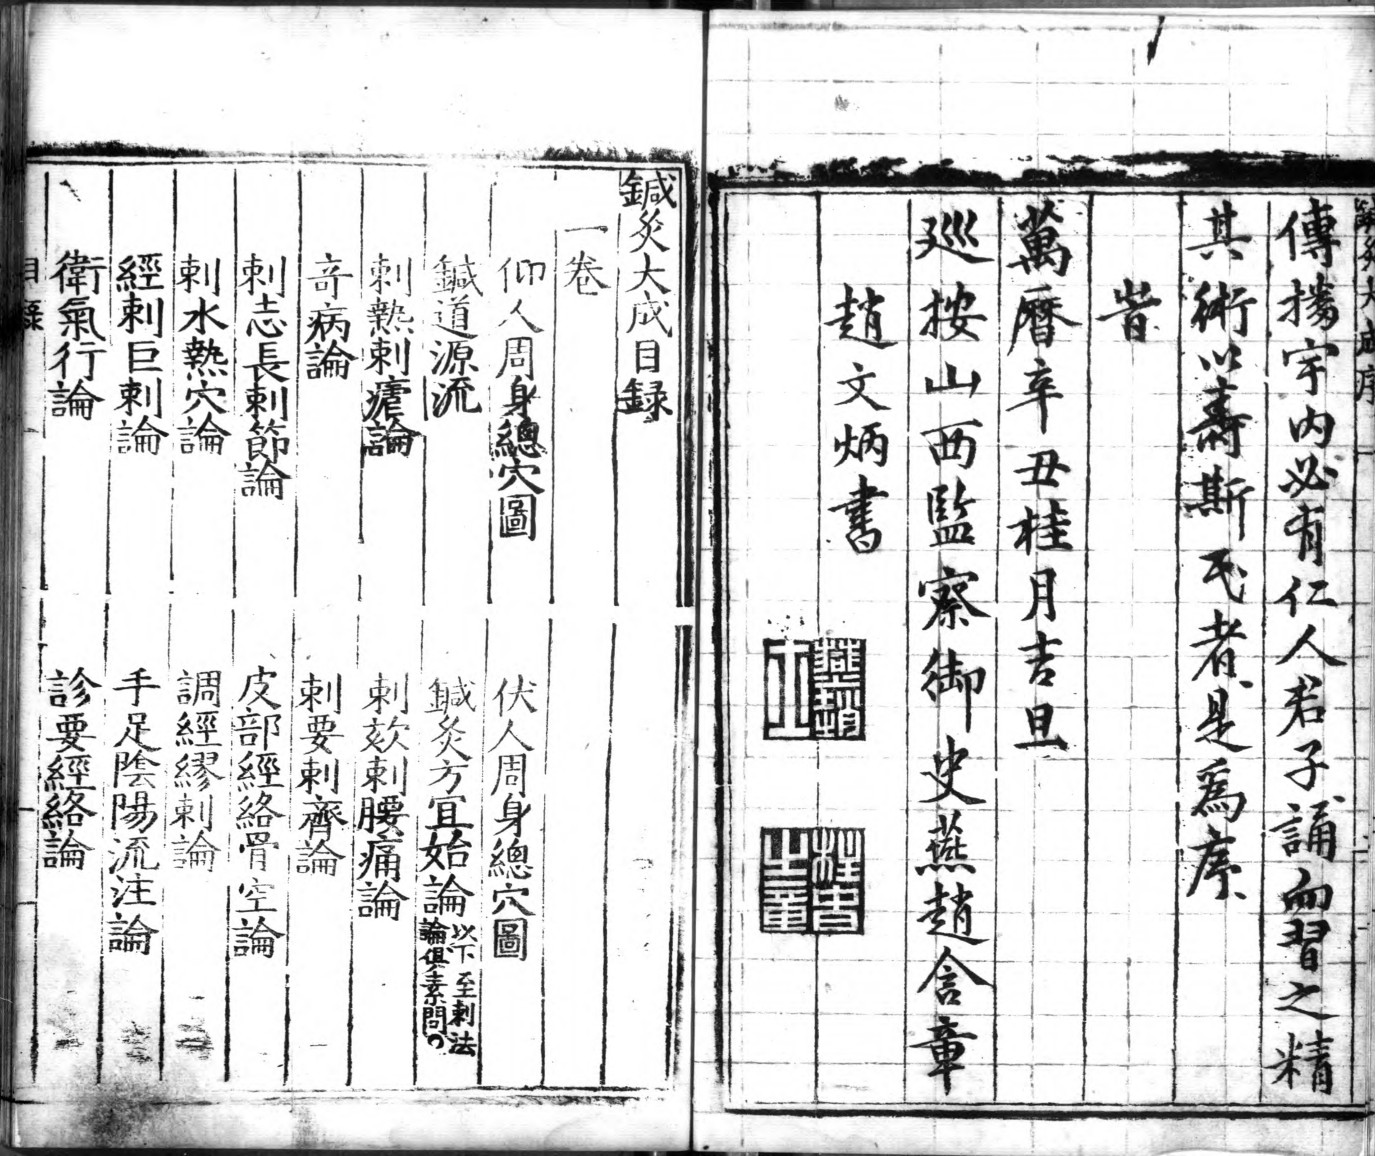 鍼灸大成序
傳播宇内必有仁人君子誦而習之精
其術以壽斯民者是爲序
旹
萬曆辛丑桂月吉旦
巡按山西監察御史燕趙含章
趙文炳書
鍼灸大成目録
一卷
仰人周身總穴圖 伏人周身總穴圖
鍼道源流 鍼灸方宜始論 以下至刺法
論俱素問
刺熱刺瘧論 刺欬刺腰痛論
奇病論 刺要刺齊論
刺志長刺節論 皮部經絡骨空論
刺水熱穴論 調經繆刺論
經刺巨刺論 手足陰陽流注論
衛氣行論 診要經絡論
目録